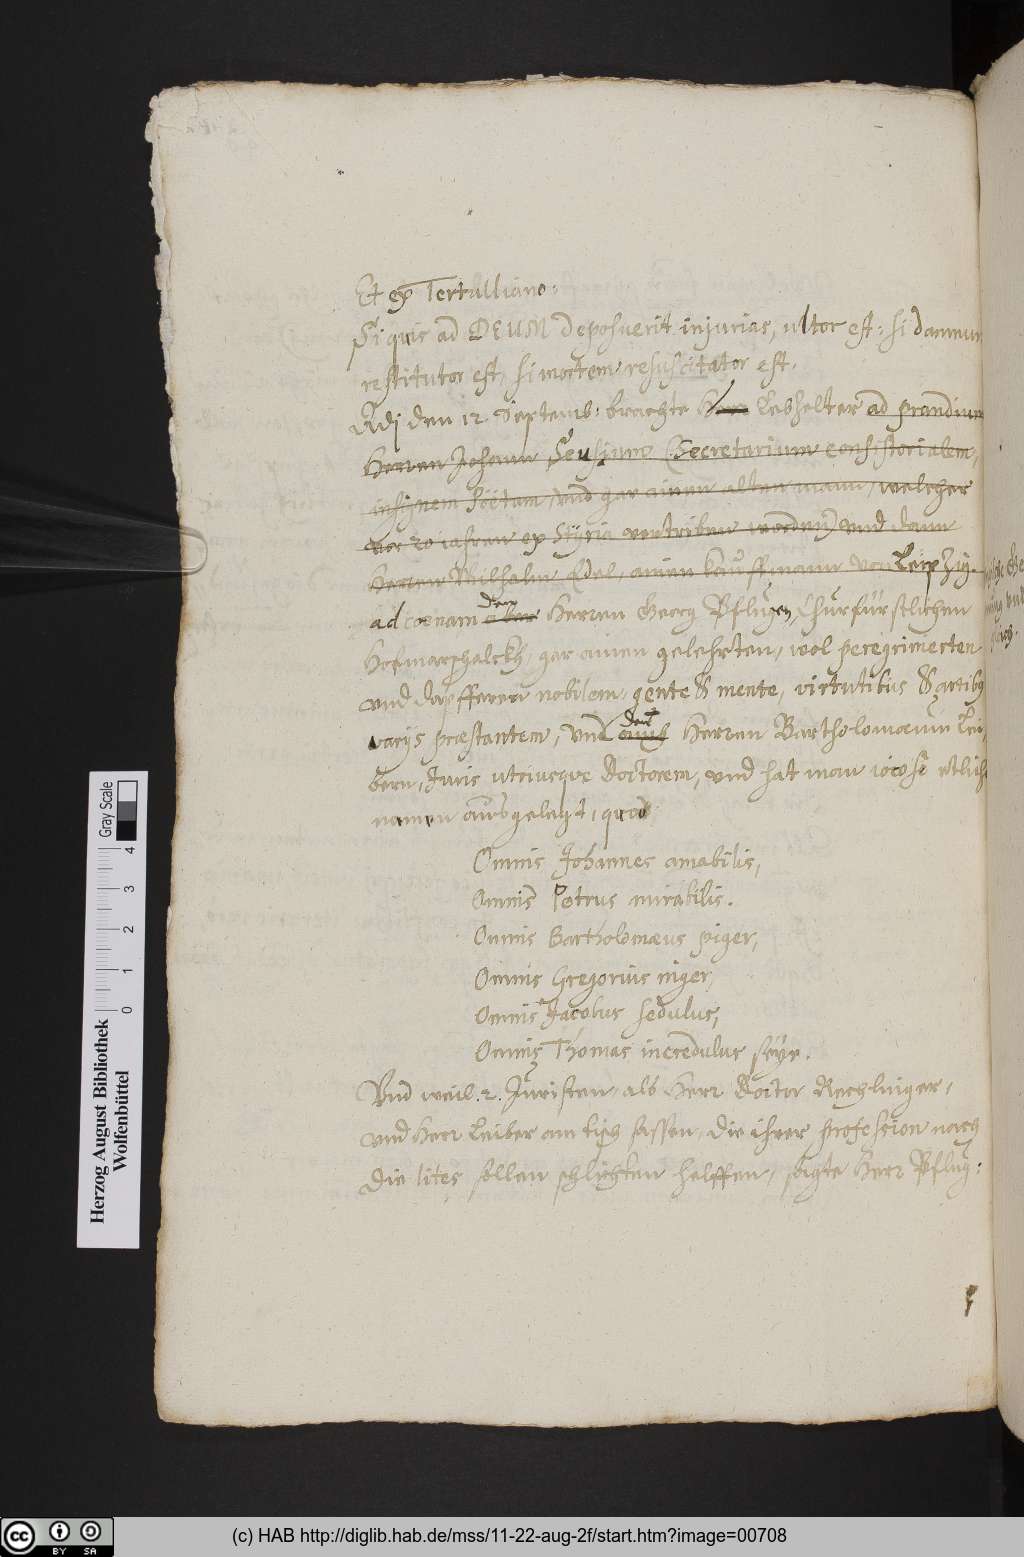 Et ex Tertulliano:
Si quis ad DEUM deposuerit injurias, ultor est: si damnum
restitutor est, si mortem resuscitator est.
Adj den 12 Septemb: brachte Herr Leßhelter ad prandium
Herren Johann Seusium (Secretarium consistorialem,
insignem Poëtam, vnd gar ainen alten mann, welcher
vor 20 iahren ex Styria vertriben worden) vnd dann
Herren Wilhelm Edel, ainen kauffmann von Leipzig.
ad coenam aber den Herren Georg Pflugen, Churfürstlichen
Hofmarschalckh, gar ainen gelehrten, wol peregrinierten
vnd dapfferen nobilem, gente & mente, virtutibus & artibus
varijs præstantem, vnd den Herren Bartholomæum Lei,
bern, Juris utriusque Doctorem, vnd hat man iocosè etliche
namen außgelegt, quod
Omnis Johannes amabilis,
Omnis Petrus mirabilis.
Omnis Bartholomæus piger,
Omnis Gregorius niger,
Omnis Jacobus sedulus,
Omnis Thomas incredulus seye.
Vnd weil .2. Juristen, als Herr Doctor Rechlinger,
vnd Herr Leiber am tisch sassen, die ihrer profession nach
die lites sollen schlichten helffen, sagte Herr Pflug:
Herzog August Bibliothek
Wolfenbüttel
0 1 2 3 4
Gray Scale
cc BY SA
(c) HAB http://diglib.hab.de/mss/11-22-aug-2f/start.htm?image=00708